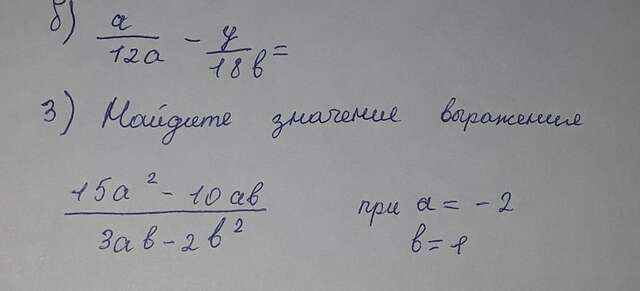 б) a/12a - y/18b =
3) Найдите значение выражения
15a² - 10ab / 3ab - 2b² при a = -2
b = 1